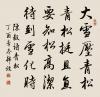 大雪壓青松
青松挺且直
要知松高潔
待到雪化時
陳毅詩青松
丁酉